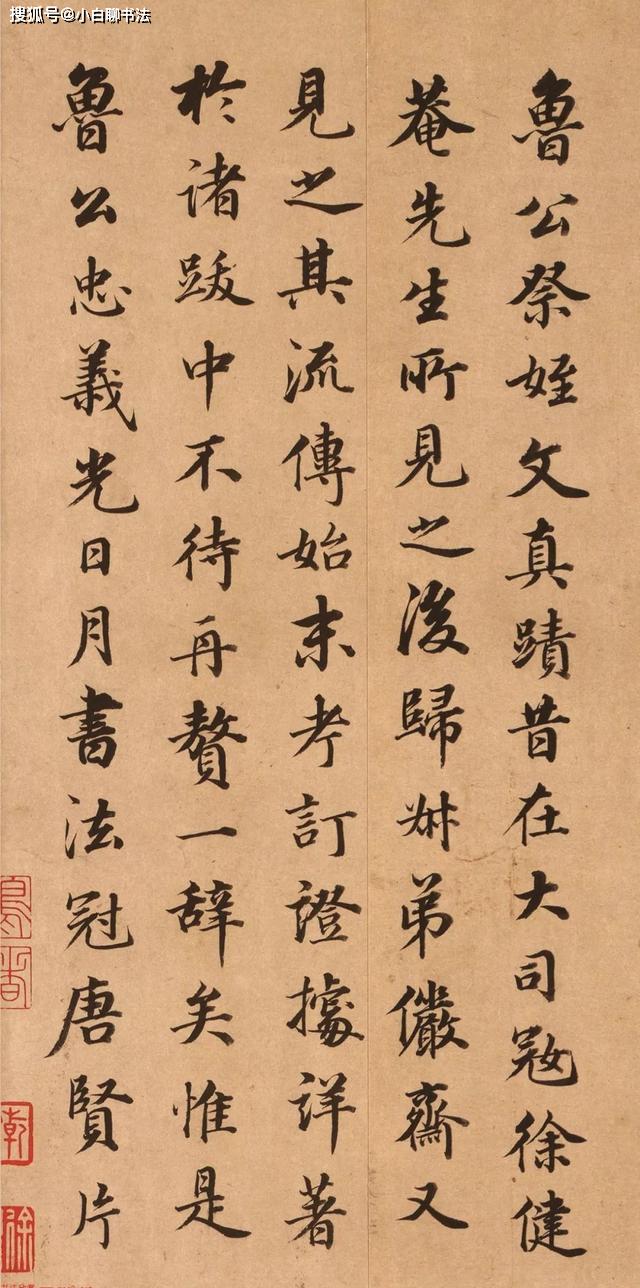 搜狐号@小白聊书法
魯公祭姪文真蹟昔在大司寇徐健
菴先生所見之後歸叔弟儼齋又
見之其流傳始末考訂證據詳著
於諸跋中不待再贅一辭矣惟是
魯公忠義光日月書法冠唐賢片